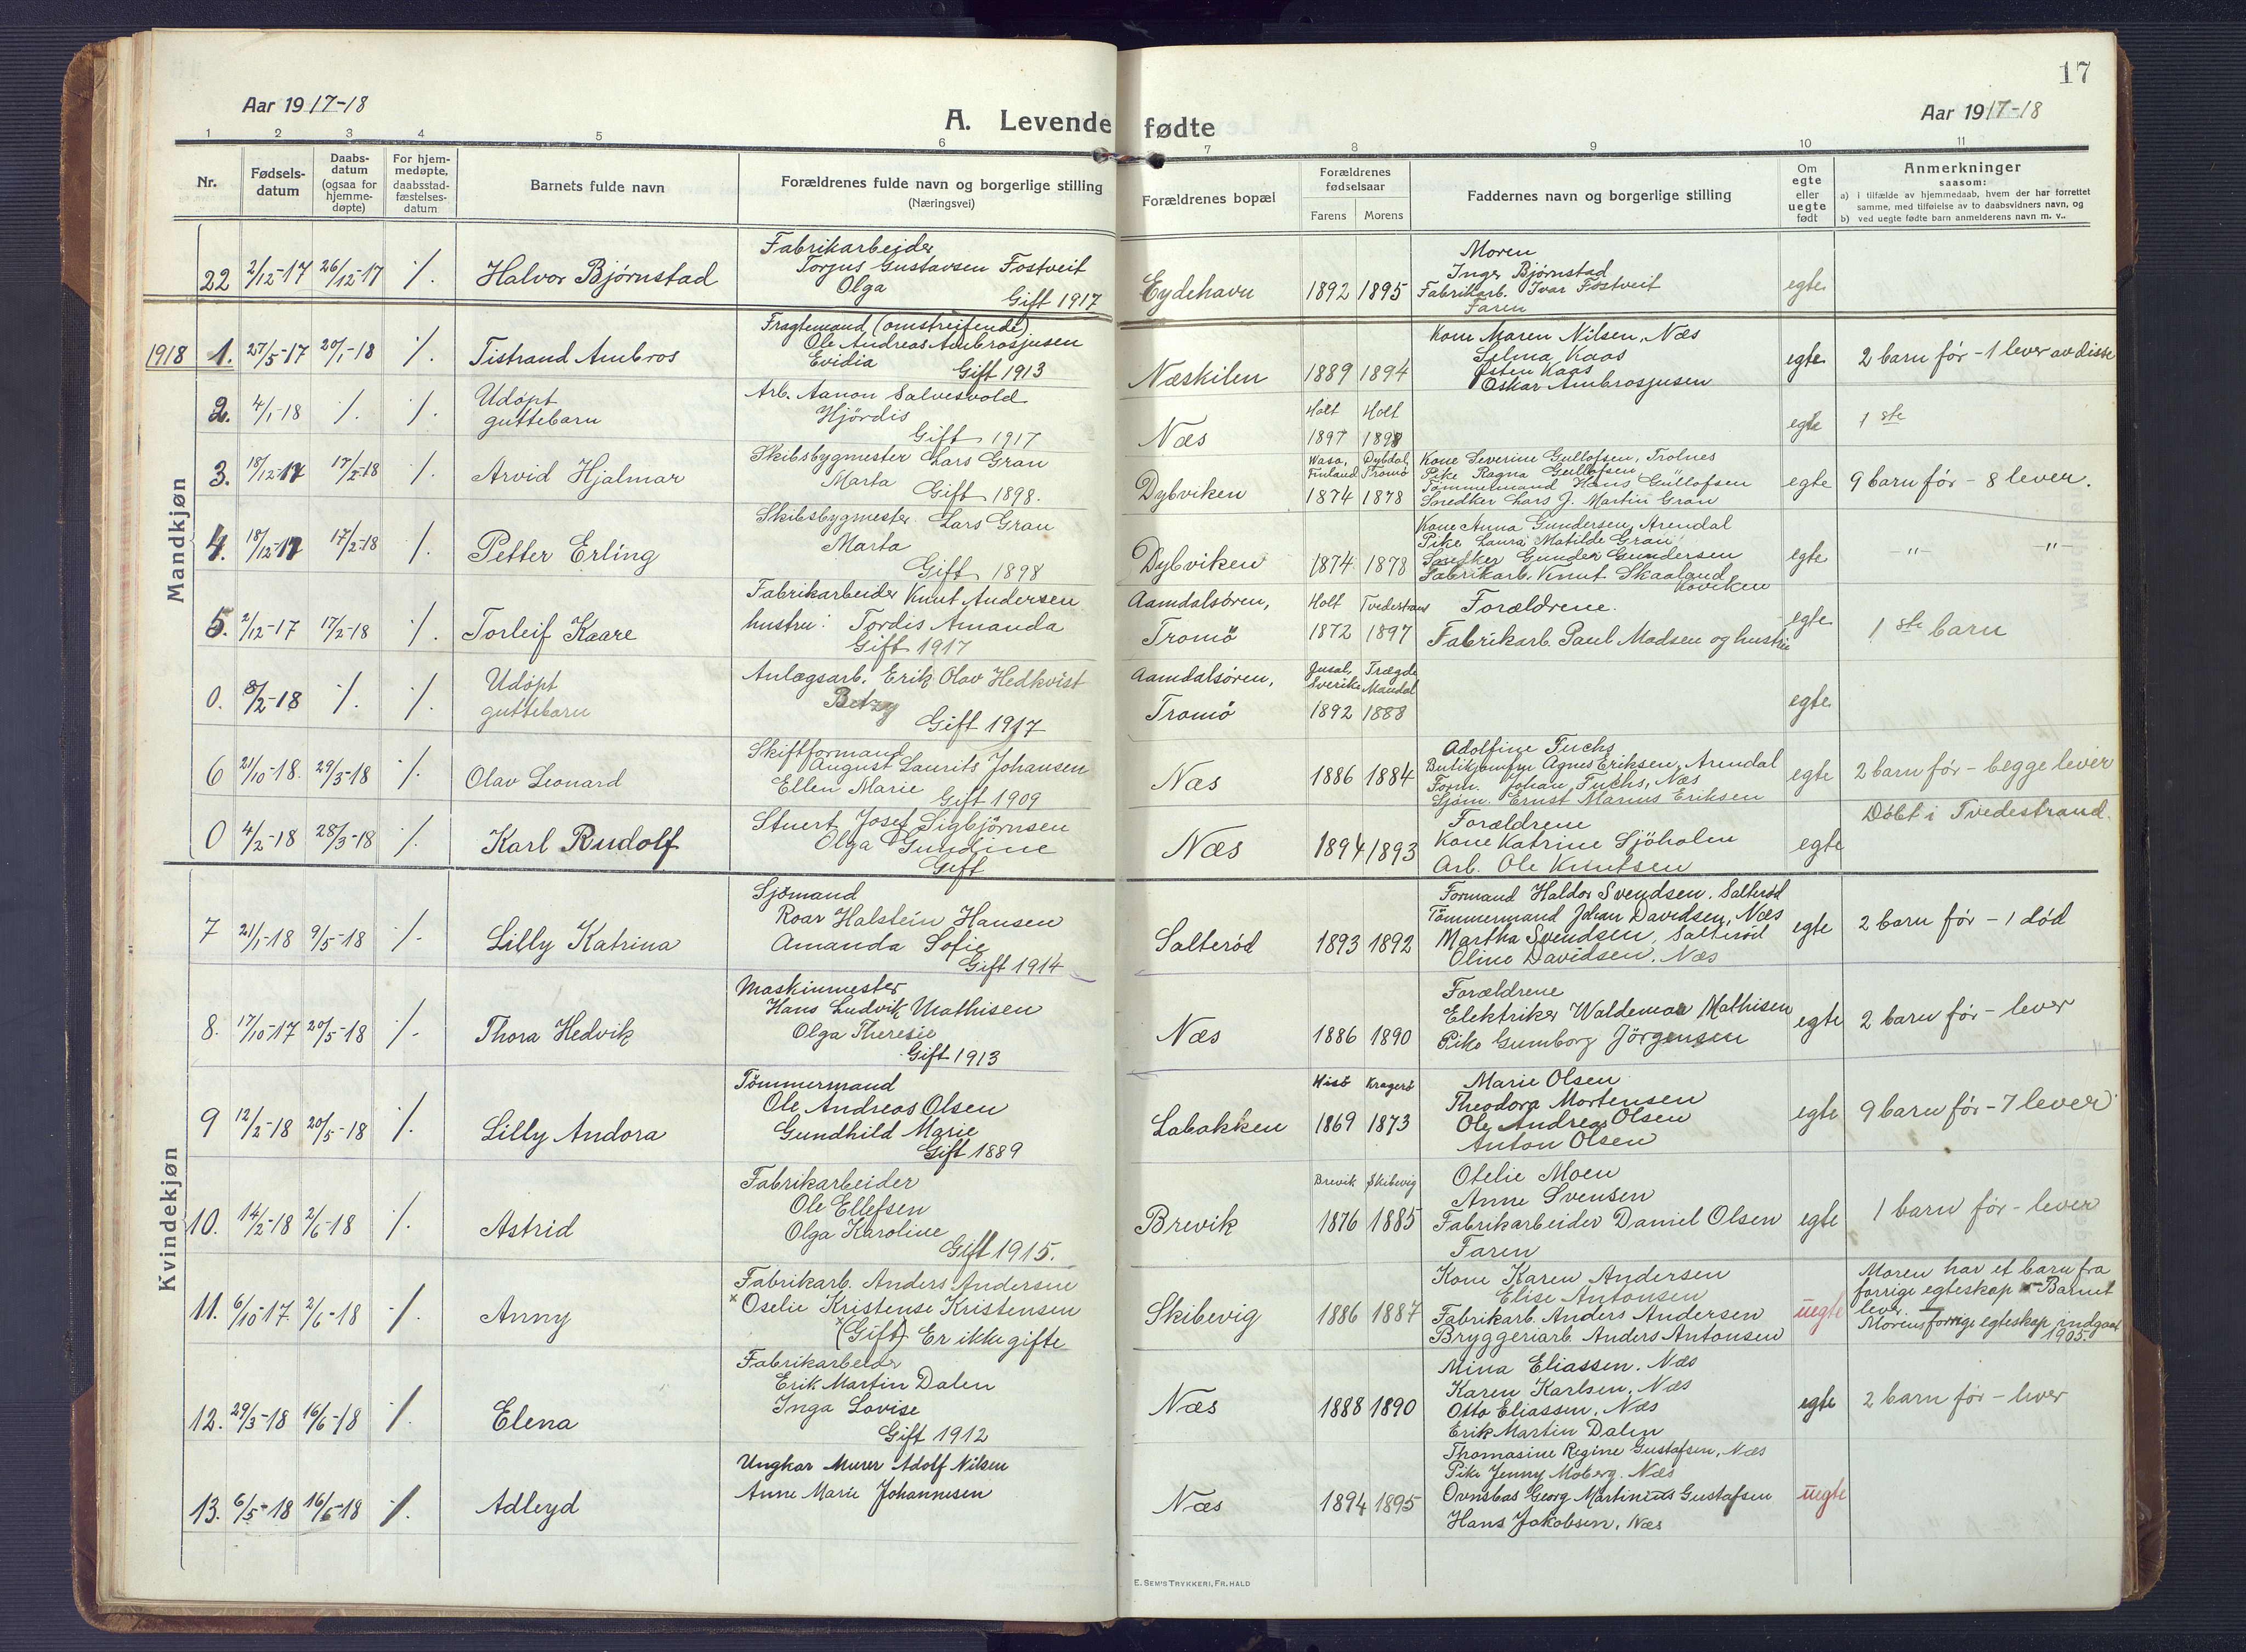 17
Aar 1917-18
A. Levende fødte
Aar 1917-18
1 2 3 4 5 6 7 8 9 10 11
Nr.
Fødsels-
datum
Daabs-
datum
(ogsaa for
hjemme-
døpte)
For hjem-
medøpte,
daabsstad-
fæstelses-
datum
Barnets fulde navn
Forældrenes fulde navn og borgerlige stilling
(Næringsvei)
Forældrenes bopæl
Forældrenes
fødselsaar
Farens
Morens
Faddernes navn og borgerlige stilling
Om
egte
eller
uegte
født
Anmerkninger
saasom:
a) i tilfælde av hjemmedaab, hvem der har forrettet
samme, med tilføielse av to daabsvidners navn, og
b) ved uegte fødte barn anmelderens navn m. v..
Mandkjøn
22 2/12-17 26/12-17 ·/. Halvor Bjørnstad
Fabrikarbeider
Torjus Gustavsen Fostveit
Olga
Gift 1917
Eydehavn 1892 1895
Moren
Inger Bjørnstad
Fabrikarb. Ivar Fostveit
Faren
egte
1918 1. 27/5-17 20/1-18 ·/. Tistrand Ambros
Fragtemand (omstreifende)
Ole Andreas Ambrosjusen
Evidia Gift 1913
Næskilen 1889 1894
Kone Maren Nilsen, Næs
Selma Kaas
Østen Kaas
Oskar Ambrosjusen
egte 2 barn før - 1 lever av disse
2. 4/1-18 ·/. ·/. Udøpt
guttebarn
Arb. Aanon Salvesvold
Hjördis
Gift 1917
Næs
Holt Holt
1897 1898
egte 1 ste
3. 18/12-17 17/2-18 ·/. Arvid Hjalmar
Skibsbygmester Lars Gran
Marta Gift 1898.
Dybviken
Wasa, Dybdal,
Finland Tromø
1874 1878
Kone Severine Gulløfsen, Trolnes
Pike Ragna Gulløfsen
Tømmermand Hans Gulløfsen
Snedker Lars J. Martin Gran
egte 9 barn før - 8 lever.
4. 18/12-17 17/2-18 ·/. Petter Erling
Skibsbygmester Lars Gran
Marta
Gift 1898
Dybviken 1874 1878
Kone Anna Gundersen, Arendal
Pike Laura Matilde Gran
Snefker Gunder Gundersen
Fabrikarb. Knut Skaaland
egte -"- -"-
5. 2/12-17 17/2-18 ·/. Torleif Kaare
Fabrikarbeider Knut Andersen
hustru: Tordis Amanda
Gift 1917
Aamdalsøren,
Tromö
Holt
1872 1897
Forældrene.
Fabrikarb. Paul Madsen og hustru
egte 1 ste barn
0. 8/2-18 ·/. ·/. Udøpt
guttebarn
Anlægsarb. Erik Olav Hedkvist
Betzy
Gift 1917
Aamdalsøren,
Tromö
Trægde
Sverike Mandal
1892 1888
egte
6 21/10-18. 29/3-18 ·/. Olav Leonard
Skiftformand
August Laurits Johansen
Ellen Marie Gift 1909
Næs 1886 1884
Adolfine Fuchs
Butikjomfru Agnes Eriksen, Arendal
Form. Johan Fuchs, Næs
Sjøm. Ernst Marius Eriksen
egte 2 barn før - begge lever
0 4/2-18 28/3-18 ·/. Karl Rudolf
Stuert Josef Sigbjörnsen
Olga Gundine
Gift
Næs 1894 1893
Forældrene
Kone Katrine Sjöholm
Arb. Ole Knutsen
egte Döbt i Tvedestrand.
Kvindekjøn
7 21/1-18 9/5-18 ·/. Lilly Katrina
Sjømand
Roar Halstein Hansen
Amanda Sofie
Gift 1914
Salterød 1893 1892
Formand Haldor Svendsen, Salterød
Tømmermand Johan Davidsen, Næs
Martha Svendsen, Salterød
Oline Davidsen, Næs
egte 2 barn før - 1 död
8. 17/10-17 20/5-18 ·/. Thora Hedvik
Maskinmester
Hans Ludvik Mathisen
Olga Theresie
Gift 1913
Næs 1886 1890
Forældrene
Elektriker Waldemar Mathisen
Pike Gumborg Jörgensen
egte 2 barn før - lever
9 12/2-18 20/5-18 ·/. Lilly Andora
Tömmermand
Ole Andreas Olsen
Gundhild Marie
Gift 1889
Labakken
Hisö Kragerö
1869 1873
Marie Olsen
Theodora Mortensen
Ole Andreas Olsen
Anton Olsen
egte 9 barn før - 7 lever
10. 14/2-18 2/6-18 ·/. Astrid
Fabrikarbeider
Ole Ellefsen
Olga Karoline
Gift 1915.
Brevik
Brevik Skibevig
1876 1885
Otelie Moen
Anne Svensen
Fabrikarbeider Daniel Olsen
Faren
egte 1 barn før - lever
11. 6/10-17. 2/6-18 ·/. Anny
Fabrikarb. Anders Andersen
x Oselie Kristense Kristensen
x (Gift) Er ikke gifte
Skibevig 1886 1887
Kone Karen Andersen
Elise Antonsen
Fabrikarb. Anders Andersen
Bryggeriarb. Anders Antonsen
uegte
Moren har et barn fra
forrige egteskap - Barnet
lever.
Morens forrige egteskap indgaat
1905.
12. 29/3-18 16/6-18 ·/. Elena
Fabrikarbeider
Erik Martin Dalen
Inga Lovise
Gift 1912
Næs 1888 1890
Mina Eliassen, Næs
Karen Karlsen, Næs
Otto Eliassen, Næs
Erik Martin Dalen
egte 2 barn før - lever
13. 6/5-18 16/6-18 ·/. Adleyd
Ungkar Murer Adolf Nilsen
Anne Marie Johannesen
Næs 1894 1895
Thomasine Regine Gustafsen, Næs
Pike Jenny Moberg, Næs
Ovnsbas Georg Martinius Gustafsen
Hans Jakobsen, Næs
uegte
E. SEM'S TRYKKERI, FR. HALD